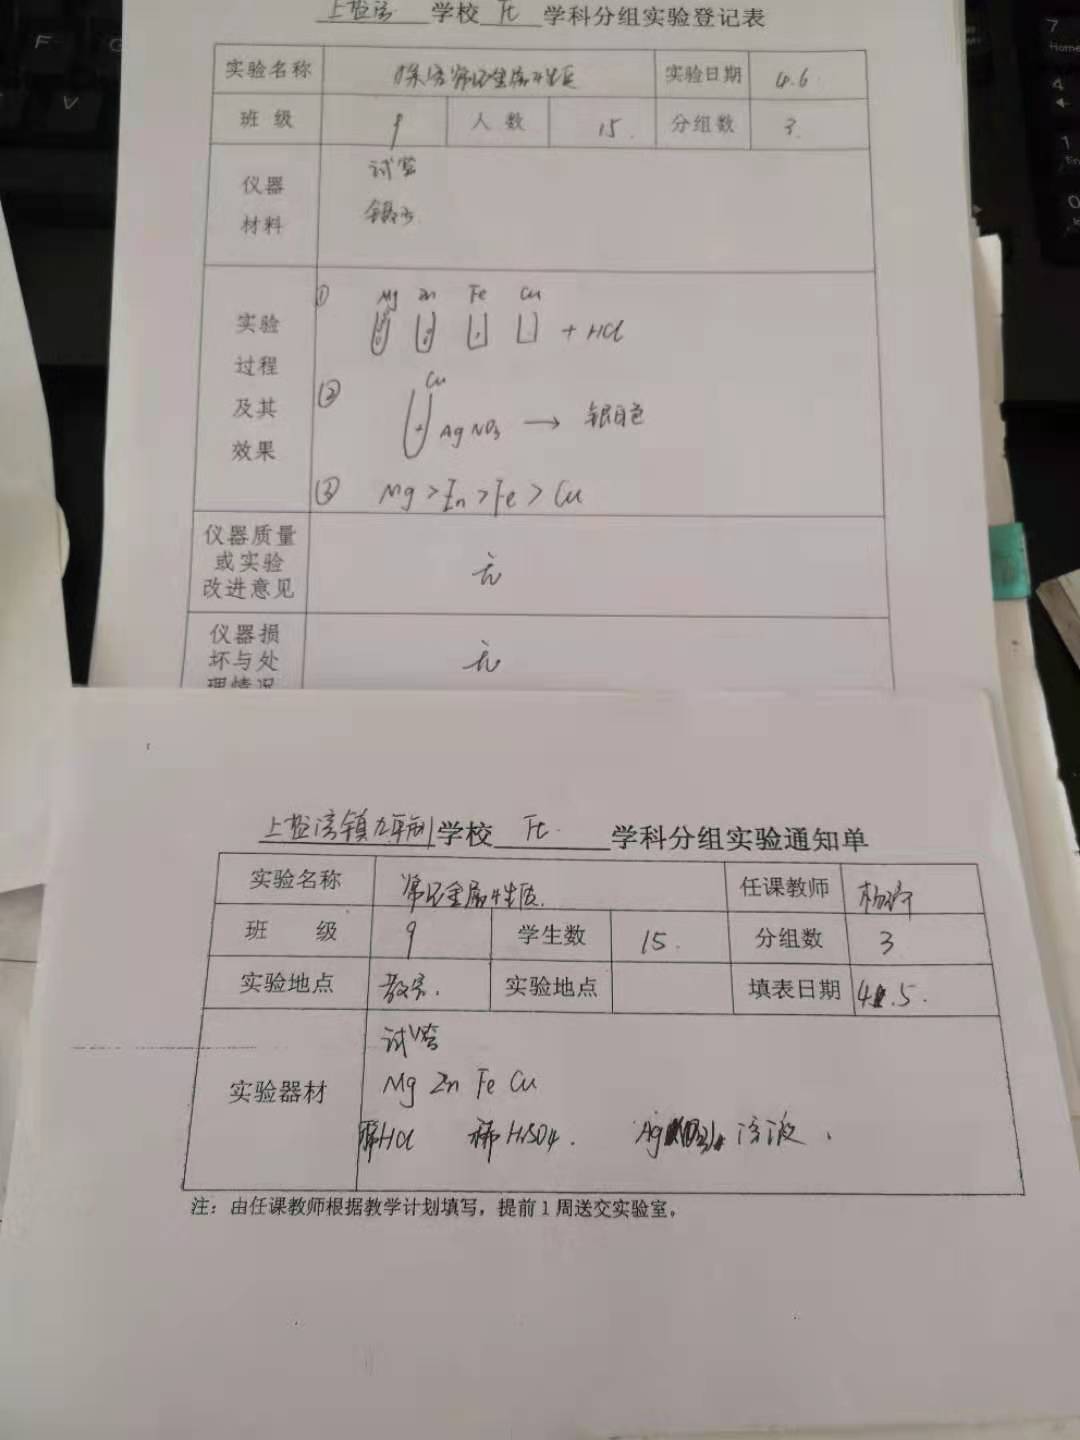 上盐湾 学校 化 学科分组实验登记表
实验名称 探究常见金属性质 实验日期 4.6
班 级 9 人 数 15. 分组数 3.
仪器 试管
材料 镊子
实验 过程 及其 效果
① Mg Zn Fe Cu + HCl
② Cu AgNO3 → 银白色
③ Mg > Zn > Fe > Cu
仪器质量
或实验
改进意见 无
仪器损
坏与处
理情况 无
上盐湾镇九年制学校 化 学科分组实验通知单
实验名称 常见金属性质. 任课教师
班 级 9 学生数 15. 分组数 3
实验地点 教室. 实验地点 填表日期 4.5.
实验器材 试管
Mg Zn Fe Cu
稀HCl 稀H2SO4. Ag 溶液.
注：由任课教师根据教学计划填写，提前1周送交实验室。
7
Home
4
1
0
F
G
V